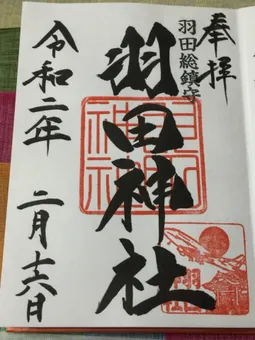 奉拝
羽田総鎮守
羽田神社
令和二年
二月十六日